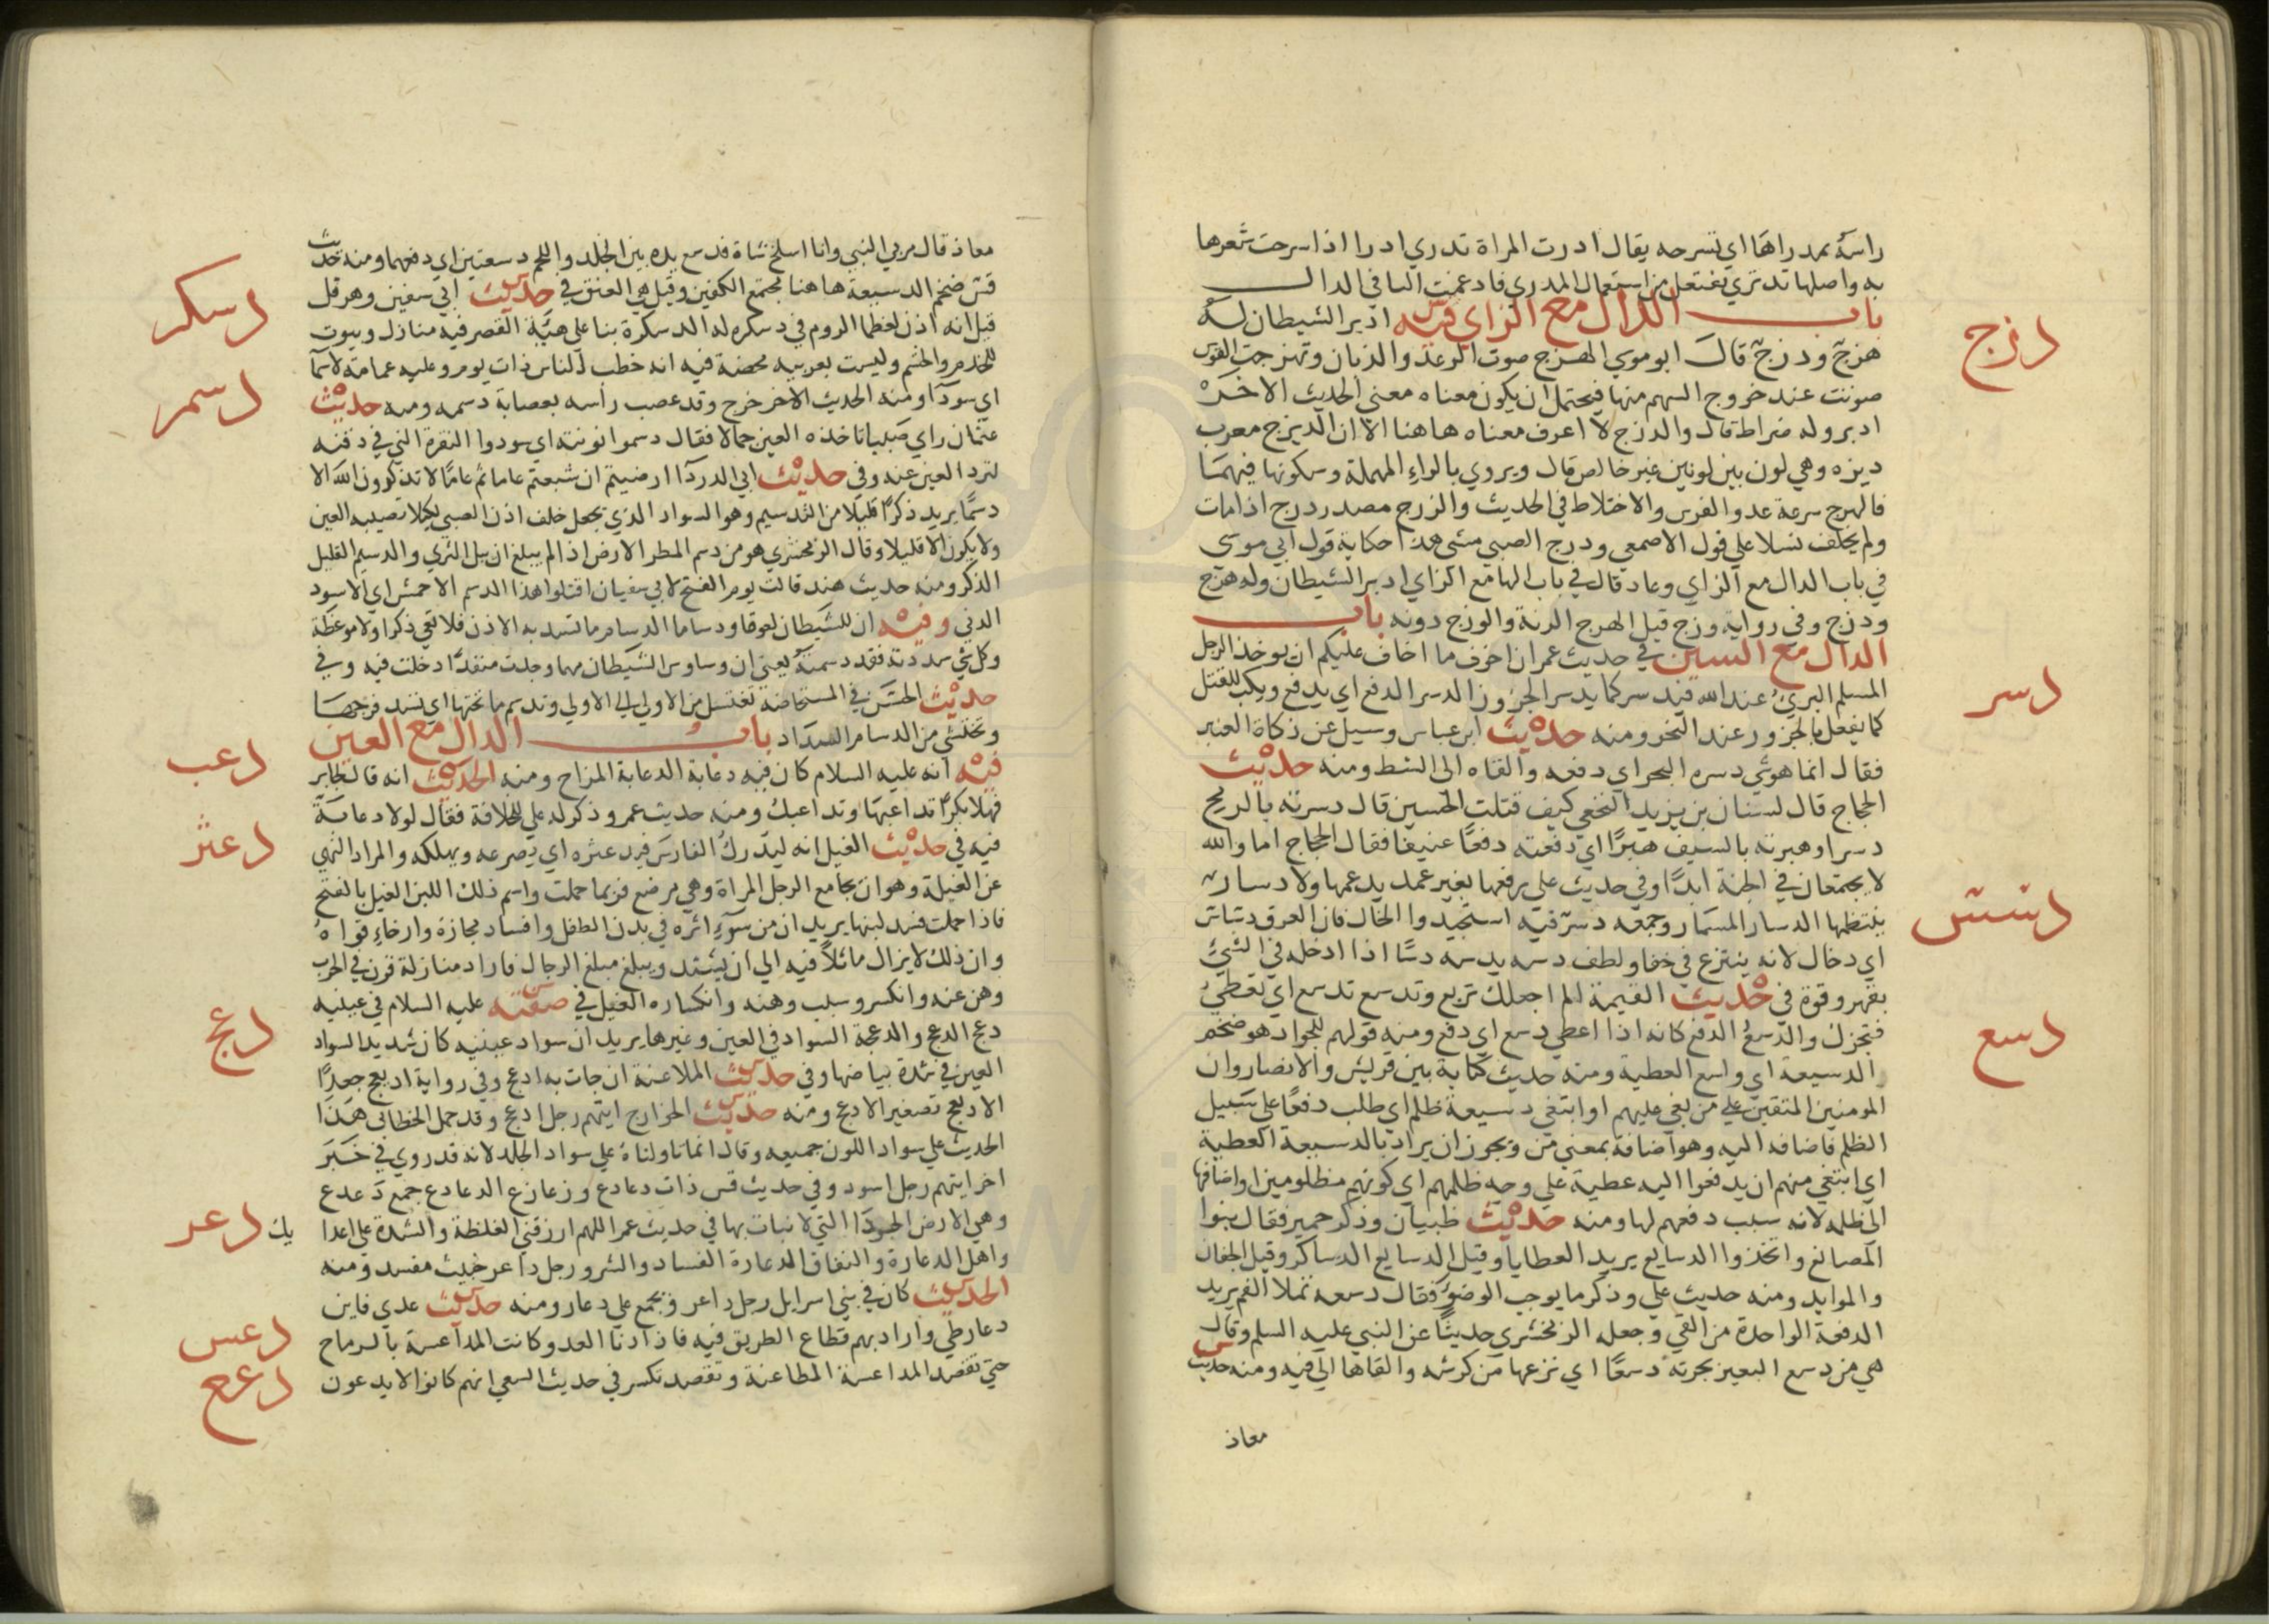 راسه بمدراها اي تسرحه يقال ادرت المراة تدري ادرا اذا سرحت شعرها
به واصلها تدتري تفتعل من استعمال المدري فادغمت التا في الدال
باب الدال مع الزاي فيه ادبر الشيطان له
دزج
هزج ودزج قال ابو موسي الهزج صوت الرعد والذبان وتهزجت القوس
صوتت عند خروج السهم منها فيحتمل ان يكون معناه معني الحديث الاخر
ادبر وله ضراط قال والدزج لا اعرف معناه هاهنا الا ان الديزج معرب
ديزه وهي لون بين لونين غير خالص قال ويروي بالراء المهملة وسكونها فيهما
فالهرج سرعة عدو الفرس والاختلاط في الحديث والدرج مصدر درج اذا مات
ولم يخلف نسلا علي قول الاصمعي ودرج الصبي مشي هذا حكاية قول ابي موسي
في باب الدال مع الزاي وعاد قال في باب الها مع الزاي ادبر الشيطان وله هزج
ودزج وفي رواية وزج قيل الهزج الرنة والوزج دونه باب
الدال مع السين في حديث عمر ان اخوف ما اخاف عليكم ان يوخذ الرجل
دسر
المسلم البري عند الله فيدسر كما يدسر الجزور الدسر الدفع اي يدفع ويكب للقتل
كما يفعل بالجزور عند النحر ومنه حديث ابن عباس وسيل عن زكاة العنبر
فقال انما هو شي دسره البحر اي دفعه والقاه الي الشط ومنه حديث
الحجاج قال لسنان بن يزيد النخعي كيف قتلت الحسين قال دسرته بالرمح
دسرا وهبرته بالسيف هبرا اي دفعته دفعا عنيفا فقال الحجاج اما والله
لا يجتمعان في الجنة ابدا وفي حديث علي يرفعها بغير عمد يدعمها ولا دسار
ينتظمها الدسار المسمار وجمعه دسر فيه استجيدوا الخال فان العرق دساس
دسس
اي دخال لانه ينزع في خفا ولطف دسه يدسه دسا اذا ادخله في الشي
بقهر وقوة في حديث القيمة الم اجعلك تربع وتدسع تدسع اي تعطي
فتجزل والدسع الدفع كانه اذا اعطي دسع اي دفع ومنه قولهم للجواد هو ضخم
دسع
الدسيعة اي واسع العطية ومنه حديث كتابه بين قريش والانصار وان
المومنين المتقين علي من بغي عليهم او ابتغي دسيعة ظلم اي طلب دفعا علي سبيل
الظلم فاضافه اليه وهو اضافة بمعني من ويجوز ان يراد بالدسيعة العطية
اي ابتغي منهم ان يدفعوا اليه عطية علي وجه ظلمهم اي كونهم مظلومين او اضافها
الي ظلمه لانه سبب دفعهم لها ومنه حديث ظبيان وذكر حمير فقال بنوا
المصانع واتخذوا الدسايع يريد العطايا وقيل الدسايع الدساكر وقيل الجفان
والموايد ومنه حديث علي وذكر ما يوجب الوضو فقال دسعة تملا الفم يريد
الدفعة الواحدة من القي وجعله الزمخشري حديثا عن النبي عليه السلم وقال
هي من دسع البعير بجرته دسعا اي نزعها من كرشه والقاها الي فيه ومنه حديث
معاذ
معاذ قال مر بي النبي وانا اسلخ شاة فدسع يده بين الجلد واللحم دسعتين اي دفعهما ومنه حديث
قس ضخم الدسيعة هاهنا مجتمع الكتفين وقيل هي العنق في حديث ابي سفين وهرقل
دسكر
قيل انه اذن لعظما الروم في دسكرة له الدسكرة بنا علي هيئة القصر فيه منازل وبيوت
للخدم والحشم وليست بعربية محضة فيه انه خطب الناس ذات يوم وعليه عمامة دسما
دسم
اي سودا ومنه الحديث الاخر خرج وقد عصب رأسه بعصابة دسمه ومنه حديث
عثمان راي صبيا تاخذه العين جمالا فقال دسموا نونته اي سودوا النقرة التي في ذقنه
لترد العين عنه وفي حديث ابي الدردا ارضيتم ان شبعتم عاما ثم عاما لا تذكرون الله الا
دسما يريد ذكرا قليلا من التدسيم وهو السواد الذي يجعل خلف اذن الصبي لكيلا تصيبه العين
ولا يكون الا قليلا وقال الزمخشري هو من دسم المطر الارض اذا لم يبلغ ان يبل الثري والدسيم القليل
الذكر ومنه حديث هند قالت يوم الفتح لابي سفيان اقتلوا هذا الدسم الاحمش اي الاسود
الدني وفيه ان للشيطان لعوقا ودساما الدسام ما تسد به الاذن فلا تعي ذكرا ولا موعظة
وكل شي سددته فقد دسمته يعني ان وساوس الشيطان مهما وجدت منفذا دخلت فيه وفي
حديث الحسن في المستحاضة تغتسل من الاولي الي الاولي وتدسم ما تحتها اي تسد فرجها
وتحتشي من الدسام السداد باب الدال مع العين
فيه انه عليه السلام كان فيه دعابة الدعابة المزاح ومنه الحديث انه قال لجابر
دعب
فهلا بكرا تداعبها وتداعبك ومنه حديث عمر وذكر له علي للخلافة فقال لولا دعابة
فيه في حديث الغيل انه ليدرك الفارس فيدعثره اي يصرعه ويهلكه والمراد النهي
دعثر
عن الغيلة وهو ان يجامع الرجل المراة وهي مرضع فربما حملت واسم ذلك اللبن الغيل بالفتح
فاذا حملت فسد لبنها يريد ان من سوء اثره في بدن الطفل وافساد مجازة وارخاء قواه
وان ذلك لا يزال ماثلا فيه الي ان يشتد ويبلغ مبلغ الرجال فاراد منازلة قرن في الحرب
وهن عنه وانكسر وسبب وهنه وانكساره الغيل في صفته عليه السلام في عينيه
دعج الدعج والدعجة السواد في العين وغيرها يريد ان سواد عينيه كان شديد السواد
دعج
العين في شدة بياضها وفي حديث الملاعنة ان جات به ادعج وفي رواية اديعج جعدا
الاديعج تصغير الادعج ومنه حديث الخوارج ايتهم رجل ادعج وقد حمل الخطابي هذا
الحديث علي سواد اللون جميعه وقال انما تاولناه علي سواد الجلد لانه قد روي في خبر
اخر ايتهم رجل اسود وفي حديث قس ذات دعادع وزعازع الدعادع جمع دعدع
وهي الارض الجردا التي لا نبات بها في حديث عمر اللهم ارزقني الغلظة والشدة علي اعدا يك
دعر
واهل الدعارة والنفاق الدعارة الفساد والشر ورجل داعر خبيث مفسد ومنه
الحديث كان في بني اسرايل رجل داعر ويجمع علي دعار ومنه حديث عدي فاين
دعار طي واراد بهم قطاع الطريق فيه فاذا دنا العدو كانت المداعسة بالرماح
دعس
حتي تقصد المداعسة المطاعنة وتقصد تكسر في حديث السعي انهم كانوا لا يدعون
دعع